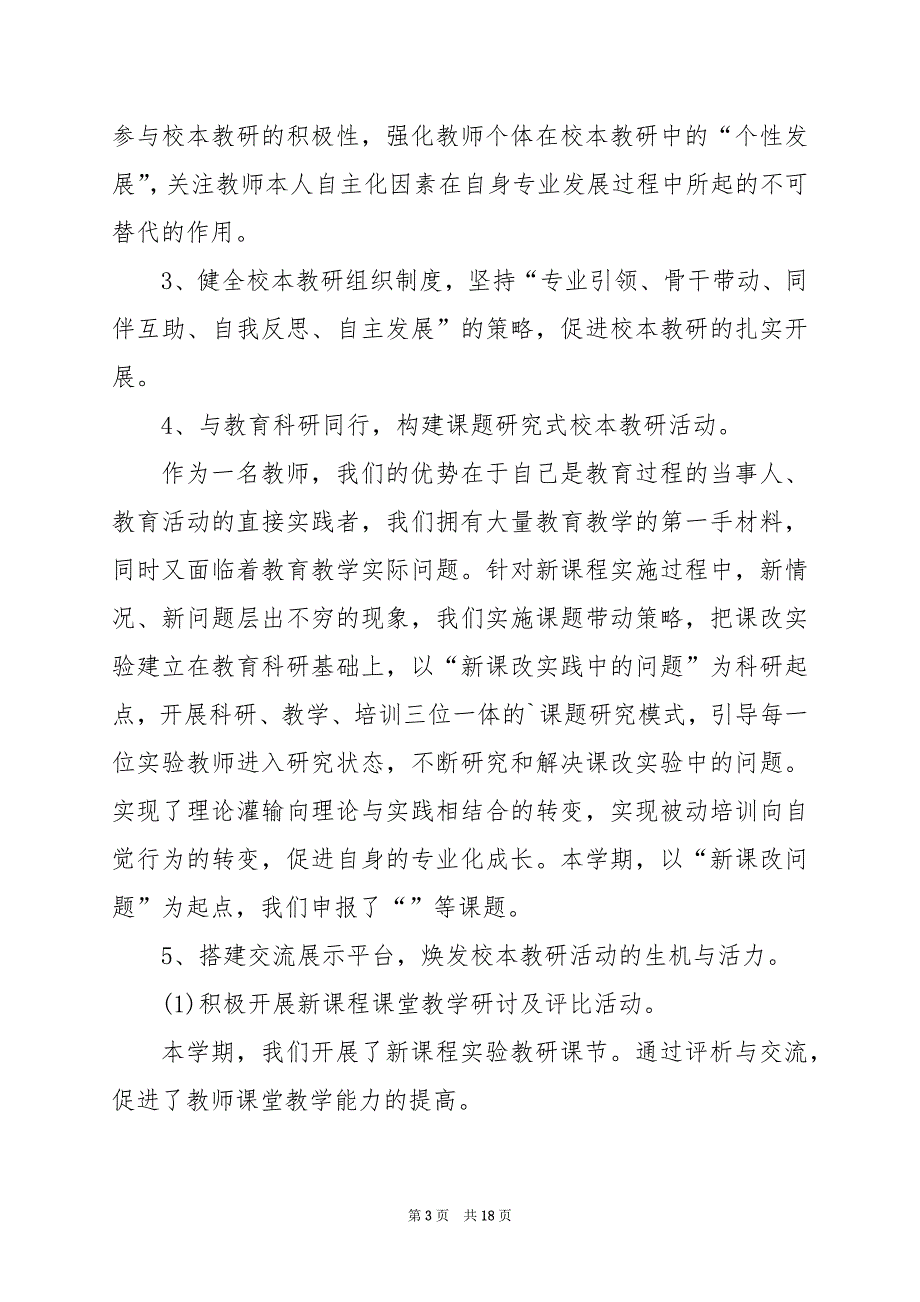 参与校本教研的积极性，强化教师个体在校本教研中的“个性发
展”，关注教师本人自主化因素在自身专业发展过程中所起的不可
替代的作用。
3、健全校本教研组织制度，坚持“专业引领、骨干带动、同
伴互助、自我反思、自主发展”的策略，促进校本教研的扎实开
展。
4、与教育科研同行，构建课题研究式校本教研活动。
作为一名教师，我们的优势在于自己是教育过程的当事人、
教育活动的直接实践者，我们拥有大量教育教学的第一手材料，
同时又面临着教育教学实际问题。针对新课程实施过程中，新情
况、新问题层出不穷的现象，我们实施课题带动策略，把课改实
验建立在教育科研基础上，以“新课改实践中的问题”为科研起
点，开展科研、教学、培训三位一体的`课题研究模式，引导每一
位实验教师进入研究状态，不断研究和解决课改实验中的问题。
实现了理论灌输向理论与实践相结合的转变，实现被动培训向自
觉行为的转变，促进自身的专业化成长。本学期，以“新课改问
题”为起点，我们申报了“”等课题。
5、搭建交流展示平台，焕发校本教研活动的生机与活力。
(1)积极开展新课程课堂教学研讨及评比活动。
本学期，我们开展了新课程实验教研课节。通过评析与交流，
促进了教师课堂教学能力的提高。
第 3 页 共 18 页